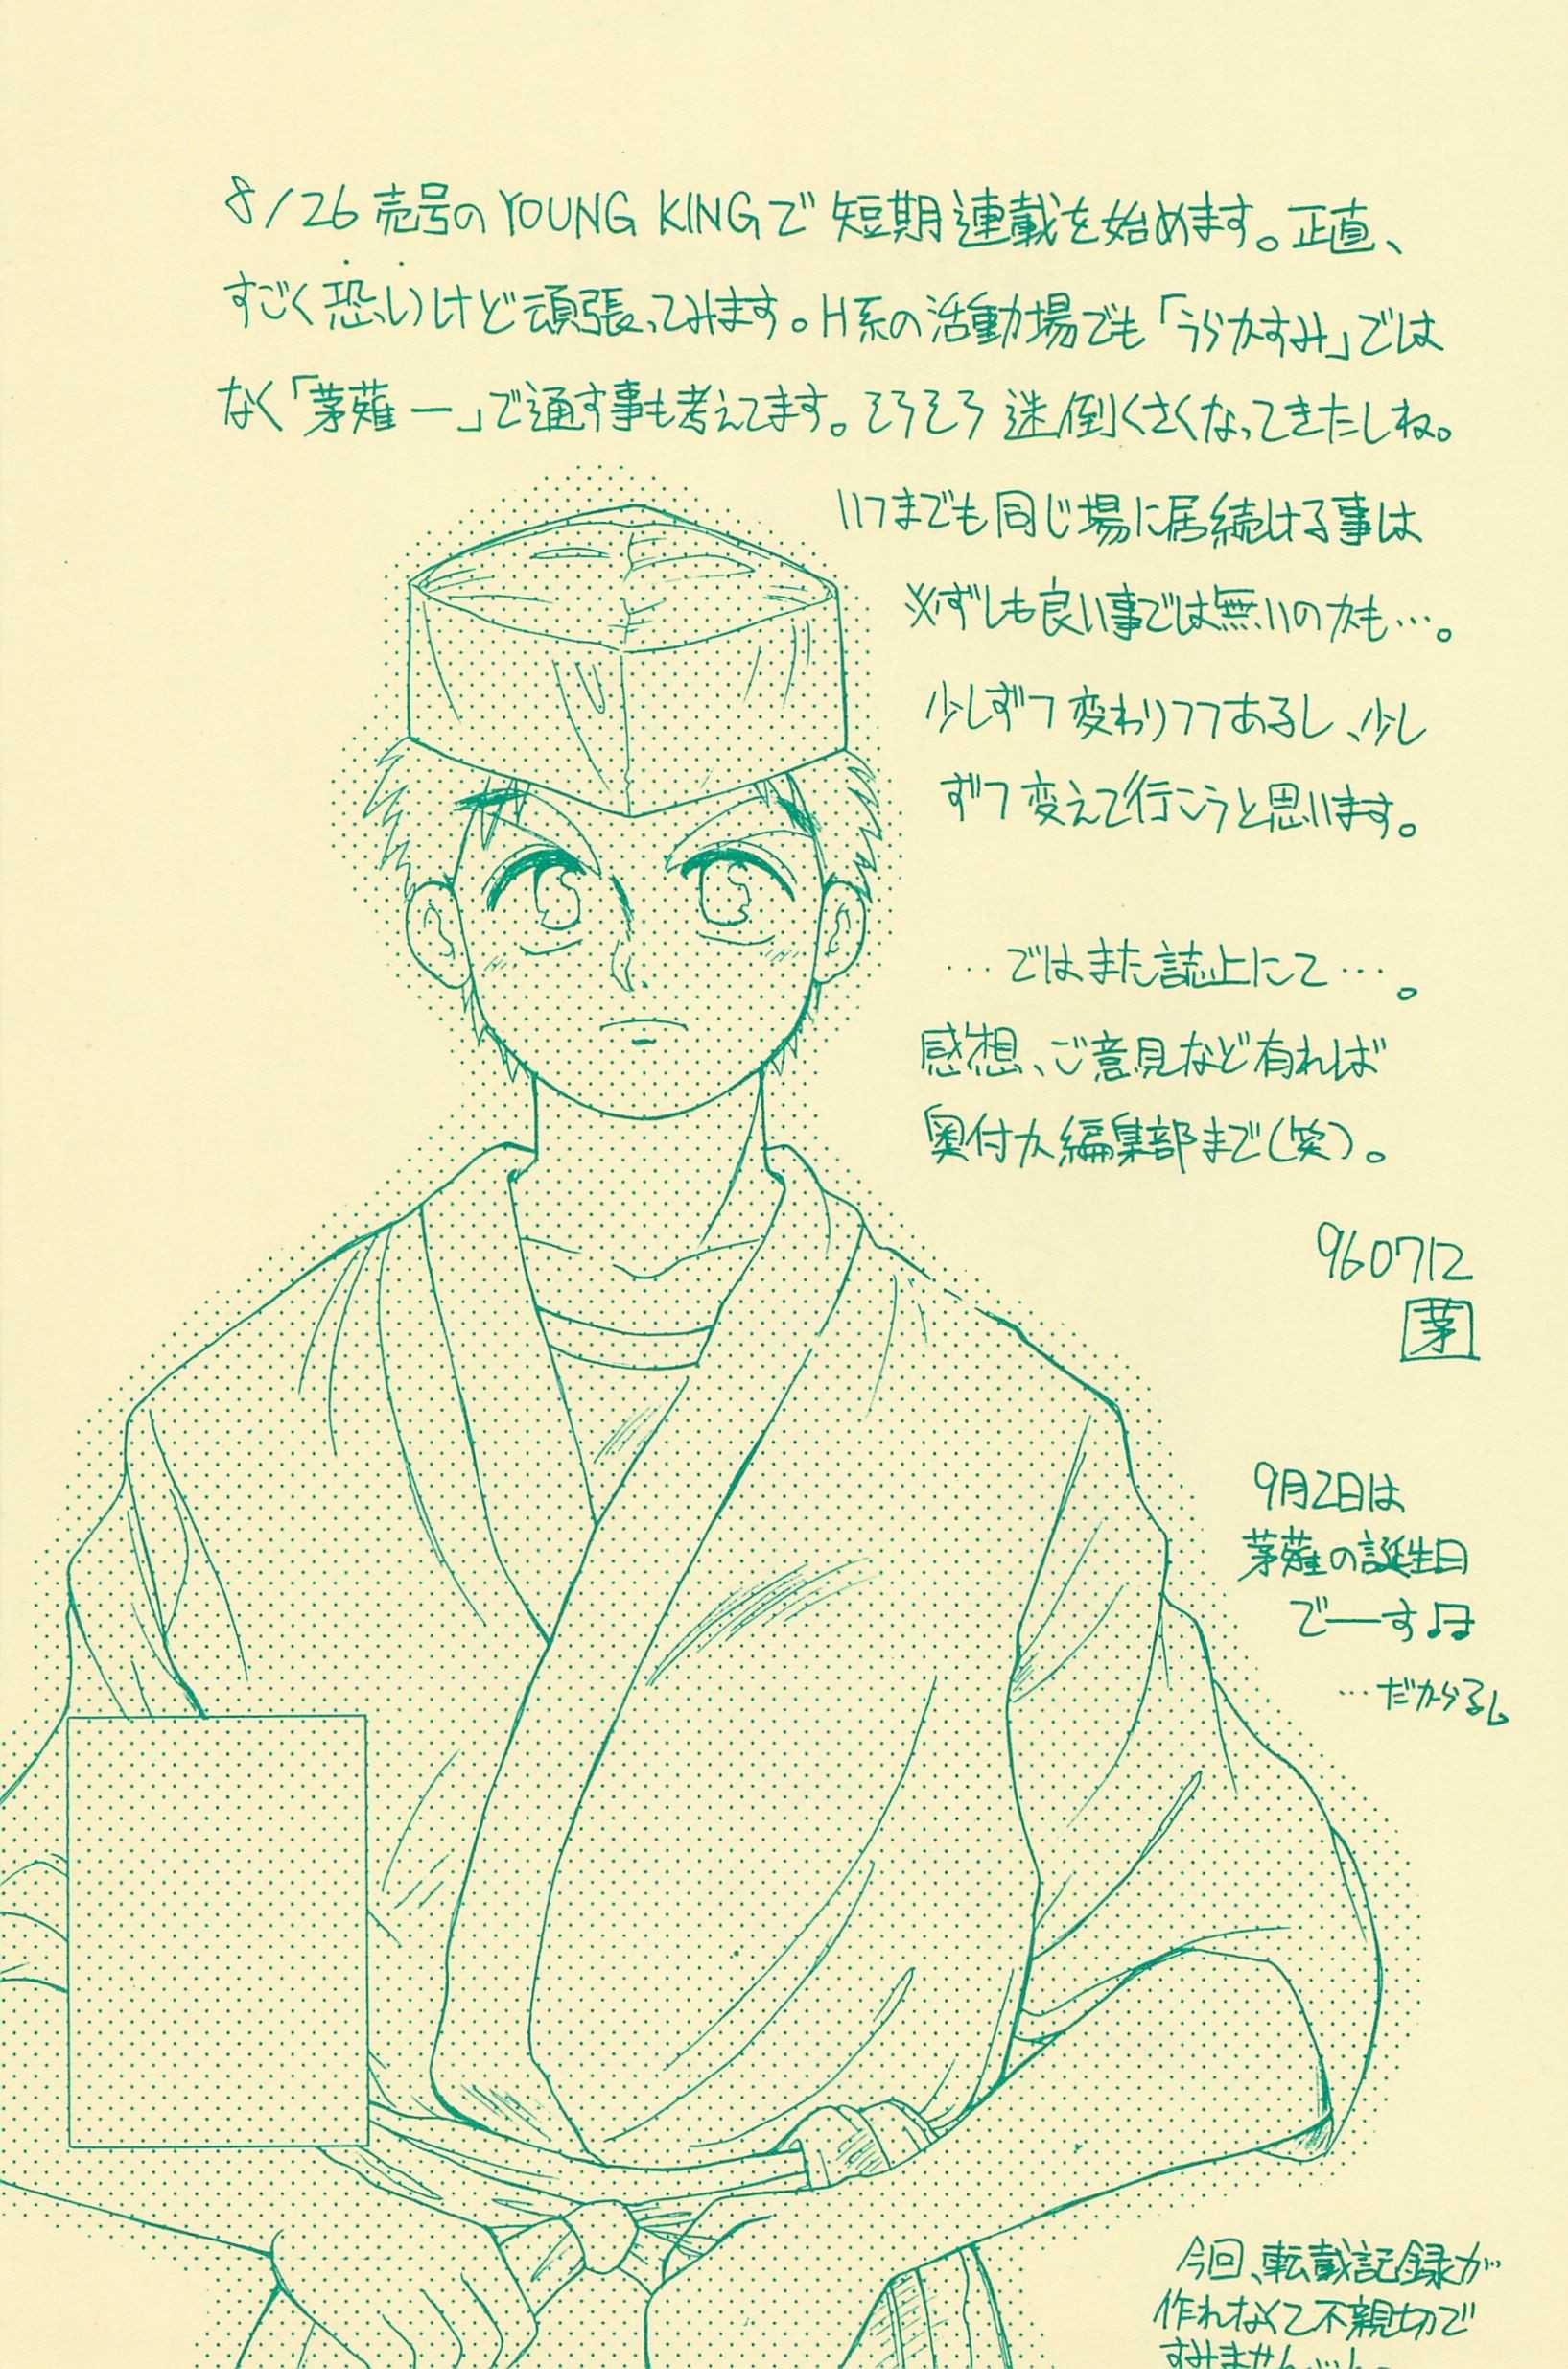 8/26売号のYOUNG KINGで短期連載を始めます。正直、
すごく恐いけど頑張ってみます。H系の活動場でも「うらかすみ」では
なく「茅薙一」で通す事も考えてます。そろそろ迷倒くさくなってきたしね。
いつまでも同じ場に居続ける事は
必ずしも良い事では無いのかも…。
少しずつ変わりつつあるし、少し
ずつ変えて行こうと思います。
…ではまた誌上にて…。
感想、ご意見など有れば
奥付か編集部まで(笑)。
960712
茅
9月2日は
茅薙の誕生日
でーす♫
…だから
今回、転載記録が
作れなくて不親切で
すみません